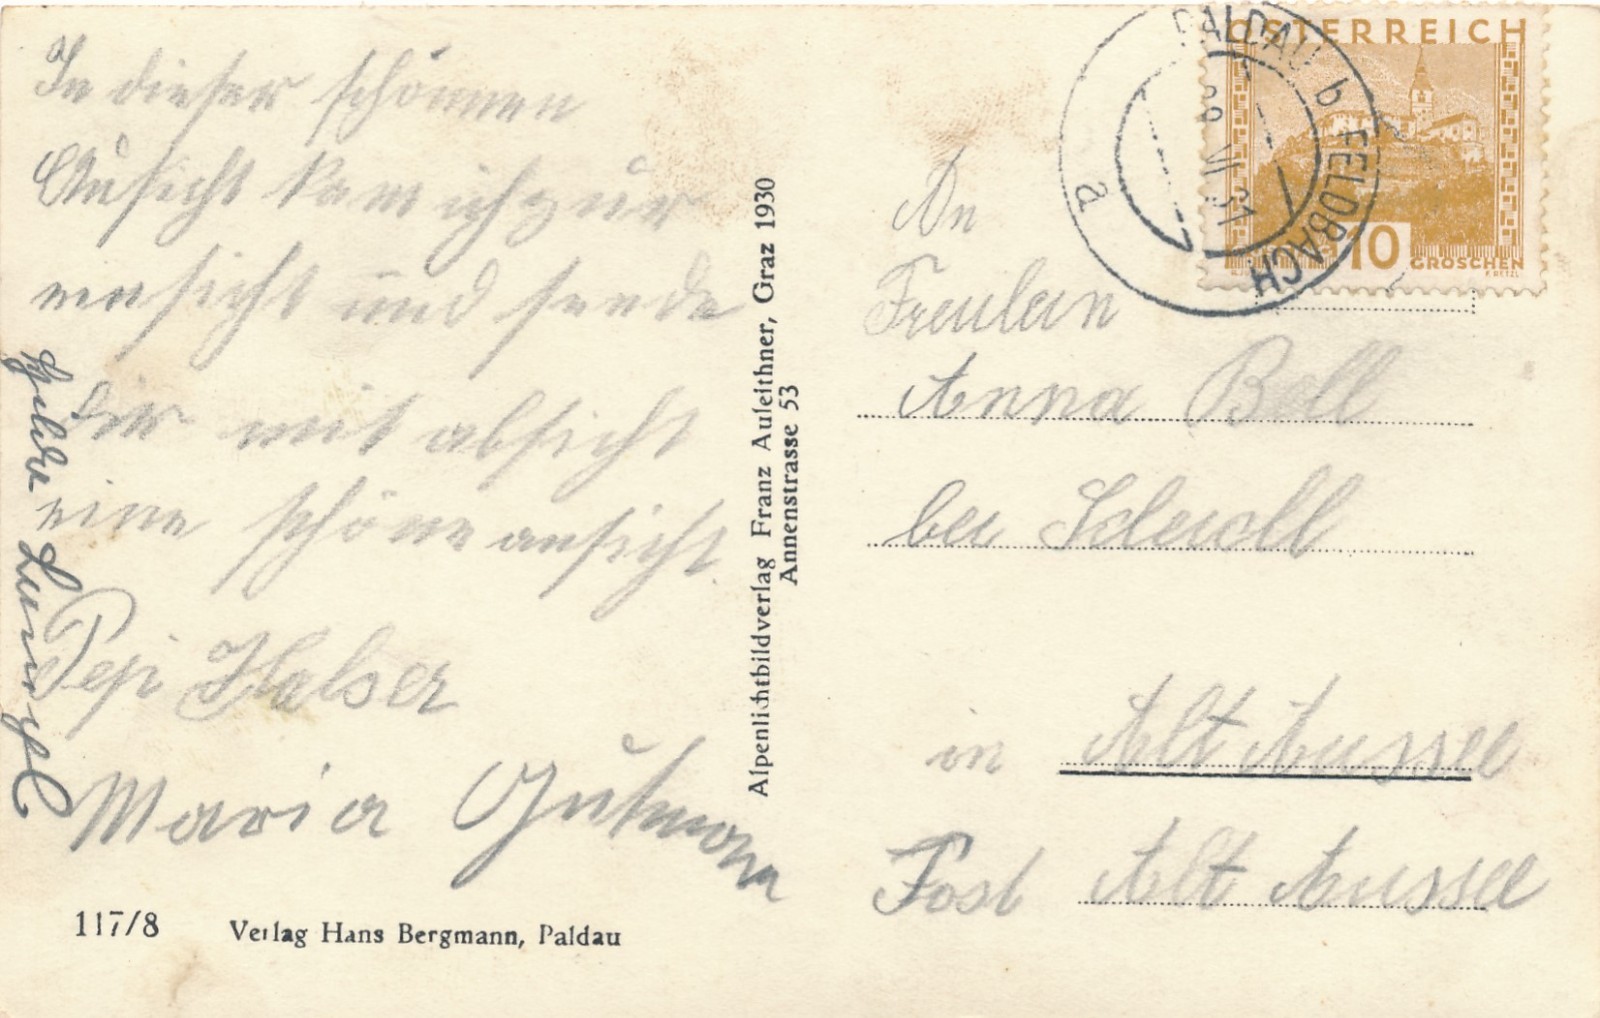 In dieser schönnen
Ausicht kam ich zur
einsicht und sende
dir mit absicht
eine schöne ansicht.
Pepi Halser
Maria Gutmann
117/8 Verlag Hans Bergmann, Paldau
Alpenlichtbildverlag Franz Auleithner, Graz 1930
Annenstrasse 53
PALDAU b FELDBACH
VI 31
a
ÖSTERREICH
10 GROSCHEN
An
Freulein
Anna Boll
bei
in Alt Aussee
Post Alt Aussee